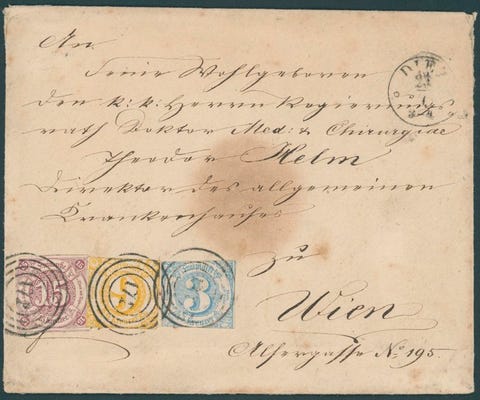 An
Seine Wohlgeboren
den k: k: Herrn Regierungs
rath Doktor Med: & Chirurgiae
Theodor Helm
Direktor des allgemeinen
Krankenhauses
zu
Wien
Alsergasse No 195.
DIEZ
3